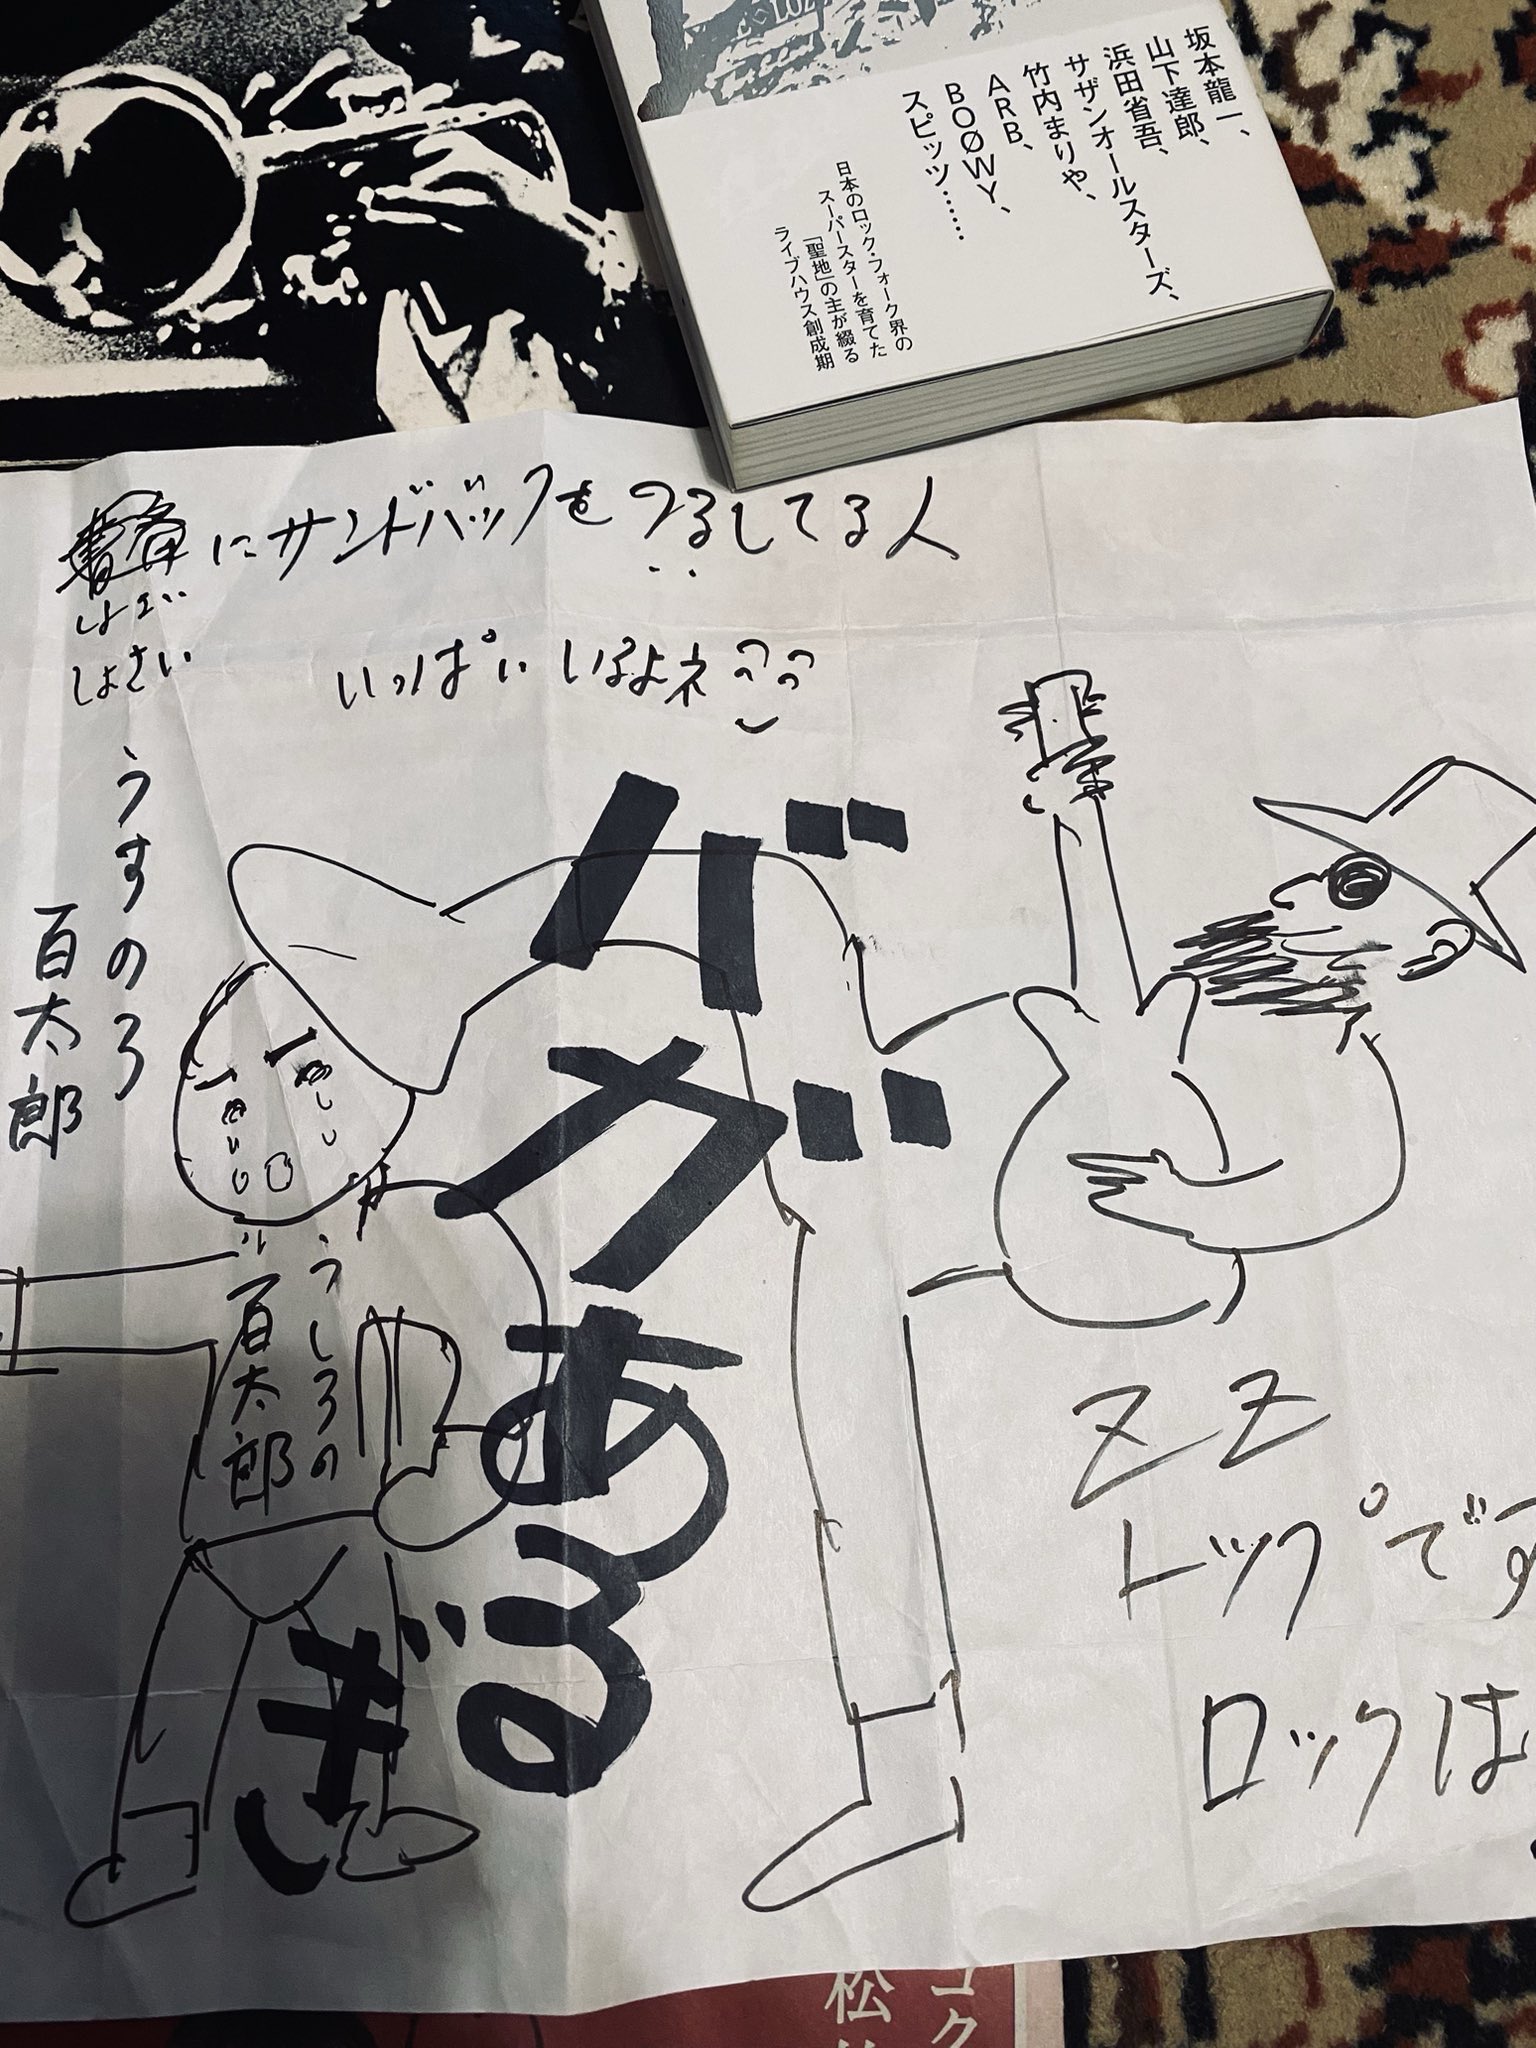 坂本龍一、
山下達郎、
浜田省吾、
サザンオールスターズ、
竹内まりや、
ARB、
BOØWY、
スピッツ……
日本のロック・フォーク界の
スーパースターを育てた
「聖地」の主が綴る
ライブハウス創成期
にサンドバッグをつるしてる人
しょさい
いっぱいいるよネ
うすのろ
百太郎
うしろの
百太郎
バカ゛ある
ぎし
ZZ
トップです
ロックは
コク
松